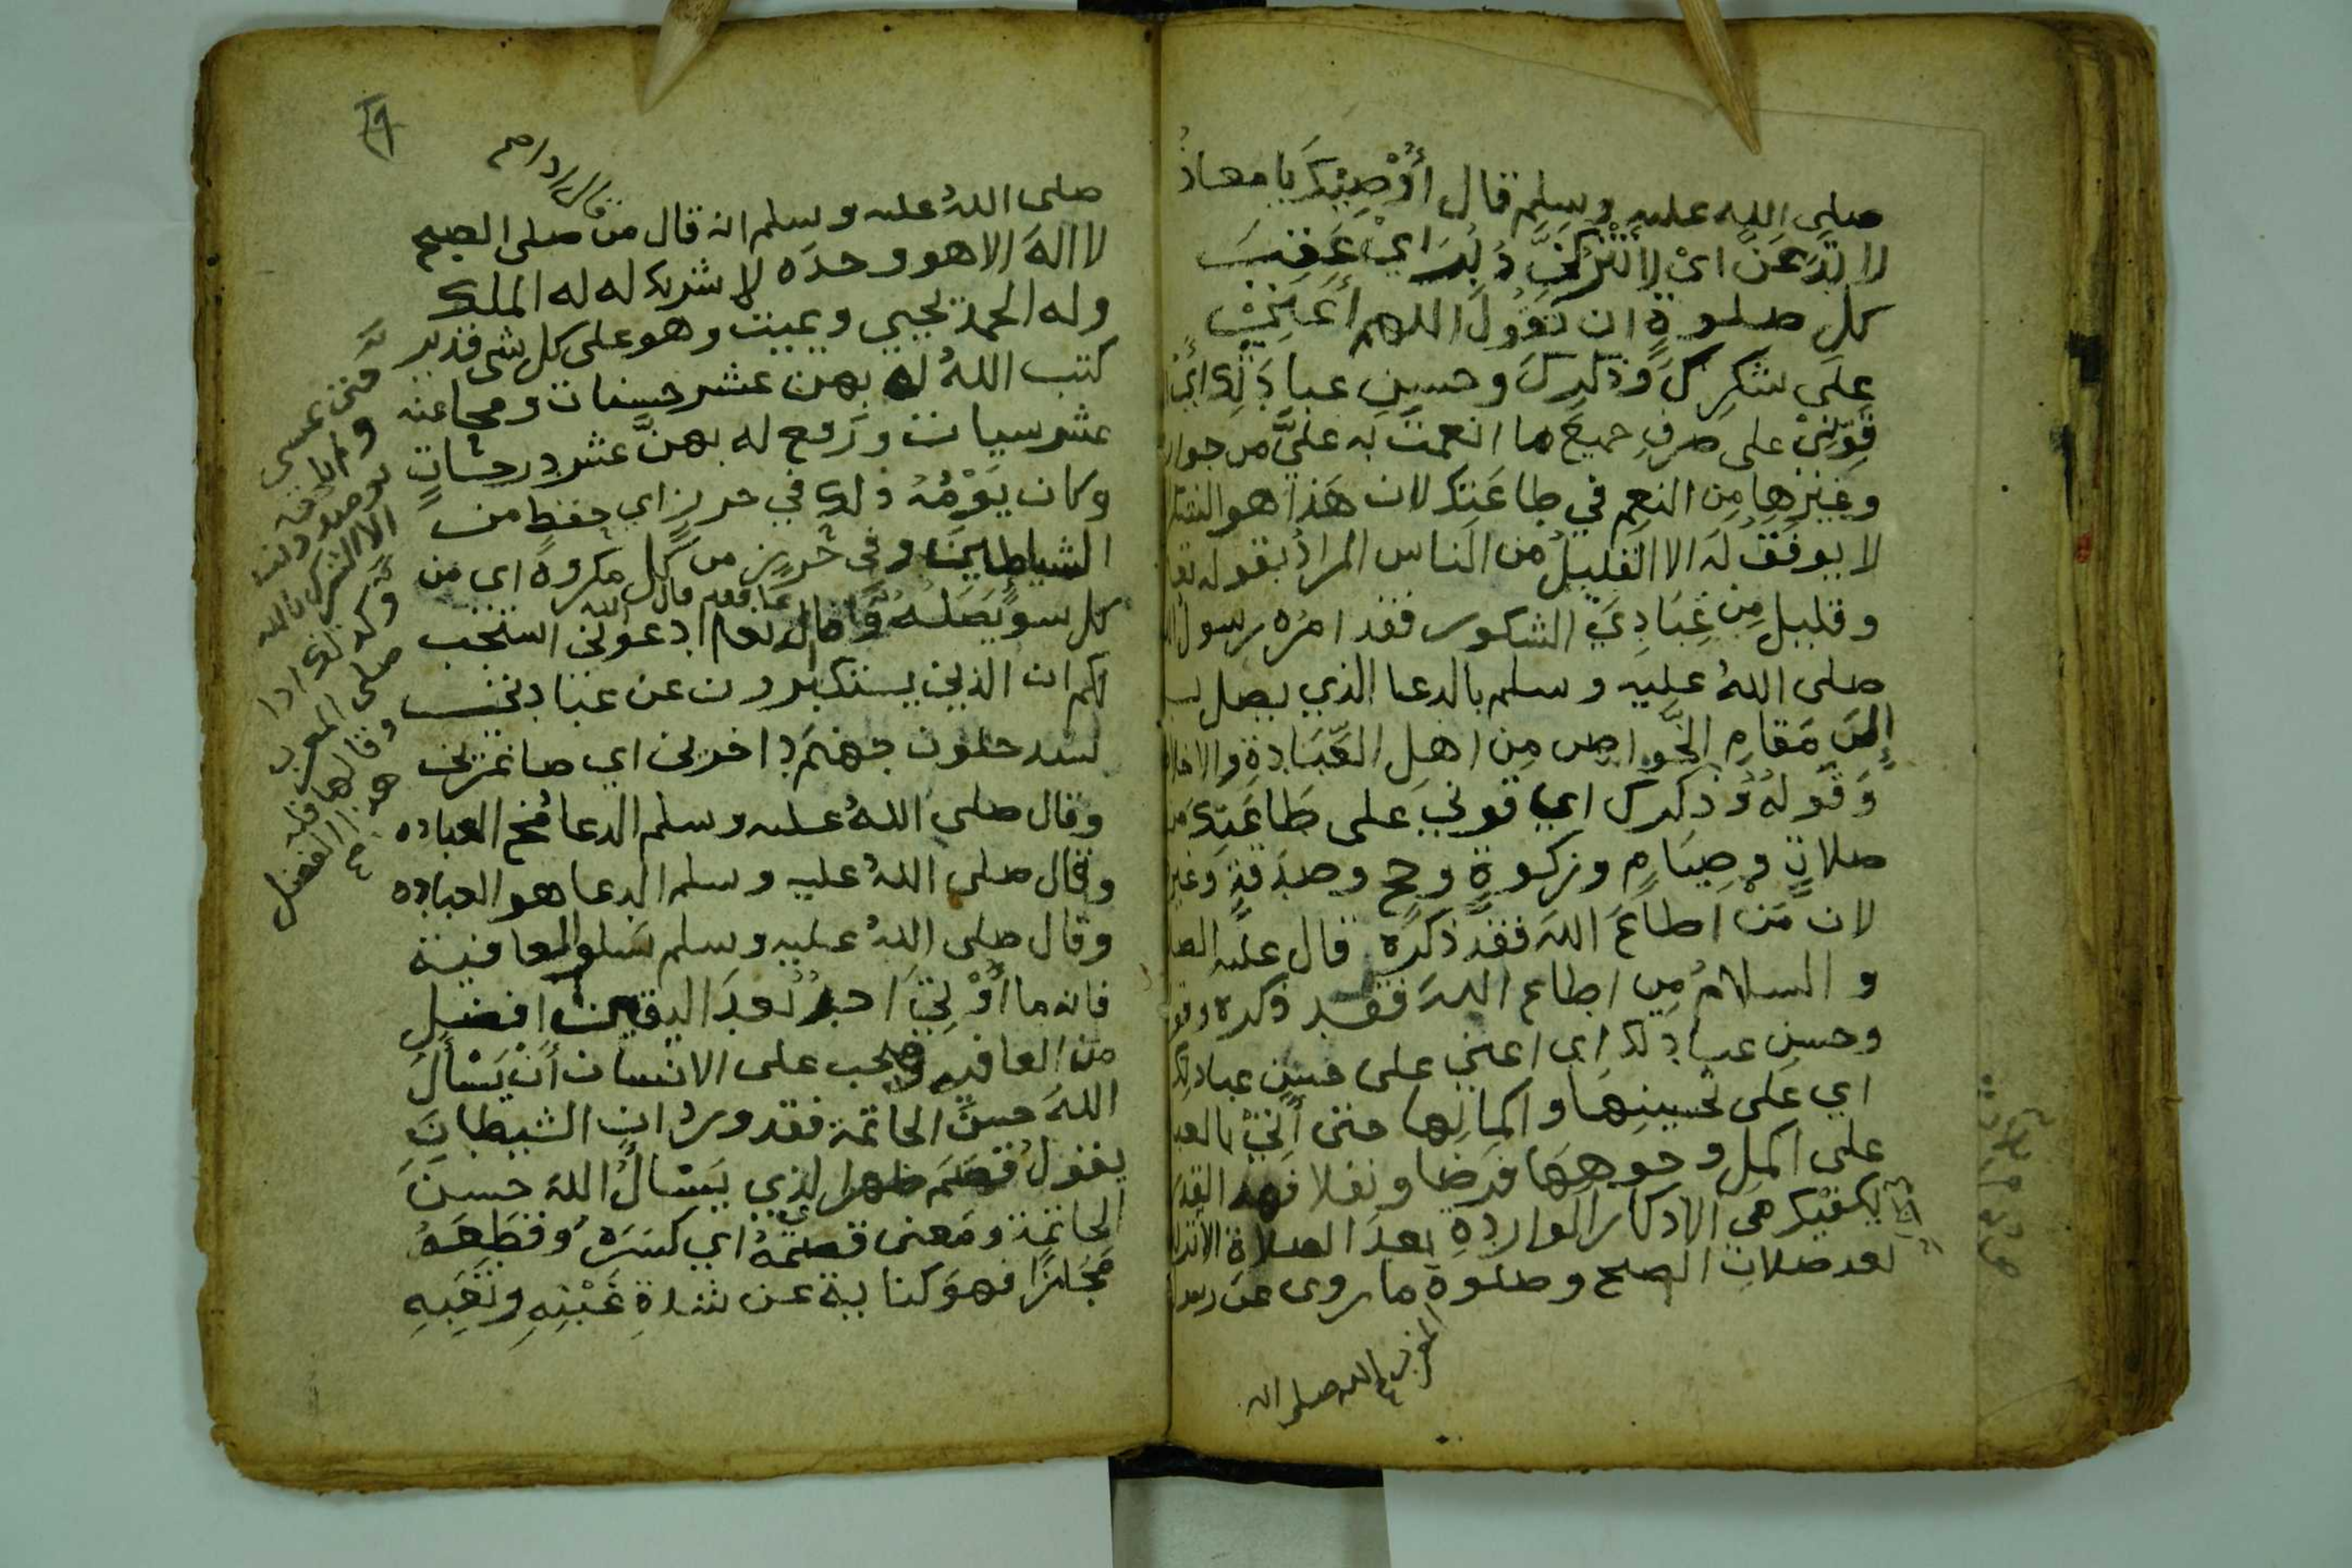 صلى الله عليه وسلم قال أُوْصِيْكَ يا معاذُ
لا تدَعَنَّ ايْ لا تَتْرُكَنَّ دُبُرَ ايْ عَقِبَ
كل صلوةٍ ان تقُولَ اللهم أَعِنِّيْ
على شكرِكَ وذكرِكَ وحسنِ عبادَتِكَ أيْ
قَوِّنِيْ على صرفِ جميعَ ما انعمتَ به عليَّ من جوار
وغيْرِها مِن النعم في طاعَتِكَ لان هَذا هو الشكر
لا يوفَّقُ له الا القليلُ من الناس المرادُ بقوله تعا
وقليلٍ مِن عِبَادِيَ الشكور فقد امرَه رسول
صلى اللهُ عليه وسلم بالدعا الذي يصل ب
إلى مَقامِ الخَواص مِن اهلِ العِبَادةِ والاخلا
وَقَولُهُ وذكرك اي قوني على طَاعَتِكَ من
صلاةٍ وصِيَامٍ وزكوةٍ وحجٍ وصدَقةٍ وغير
لان مَنْ اطاعَ اللهَ فقد ذكرَه قال عليه الصلا
و السلامُ مِن اطاع اللهَ فقد ذكره وقو
وحسنِ عبادتِك اي اعني على حسنِ عبادتِك
اي على تحسينِهَا واكمالِها حتى أتيْ بالعبا
على اكملِ وجوهِهَا فرضا ونفلا فهذا القدر
يكفيك من الاذكار الواردهِ بعدَ الصلاة
بعد صلاة الصبح وصلوة ما روى عن رسول
المغرب صح
الله صلى الله
صلى اللهُ عليه وسلم انه قال من صلى الصبح
لا الهَ الا هو وحدَه لا شريك له له الملك
وله الحمد يحيي ويميت وهو على كل شى قدير
كتب اللهُ له بهن عشر حسنات ومحا عنه
عشر سيات ورَفع له بهنَّ عشر درجاتٍ
وكان يَوْمُهُ ذلك في حرزٍ اي حفظٍ من
الشياطين وفى حرزٍ من كل مكروهٍ اى من
كل سو يَصَلُهُ وقال تعالى ادعونى استجب
لكم ان الذين يستكبرون عن عبادتى
سيدخلون جهنَم داخرين اي صاغرين
وقال صلى اللهُ عليه وسلم الدعا مُخ العباده
وقال صلى اللهُ عليه وسلم الدعا هو العباده
وقال صلى اللهُ عليه وسلم سَلو العافية
فانه ما أُوْتِيَ احدٌ بَعدَ اليقين افضل
من العافيه ويجب على الانسان أَنْ يَسْأَلَ
اللهَ حسنَ الخاتمة فقد ورد ان الشيطانَ
يقولُ قصَمَ ظهرى الذي يَسْالُ اللهَ حسنَ
الخاتمةِ ومَعنى قصمهُ اي كسَرَه وقطَعَهُ
مَجَازًا فهوَ كناية عن شدةِ غَبْنِهِ وتَعَبِهِ
الا الشرك بالله
وكذلك اذا
صلى المغرب
وقالها فله
هذا الفضل
صح